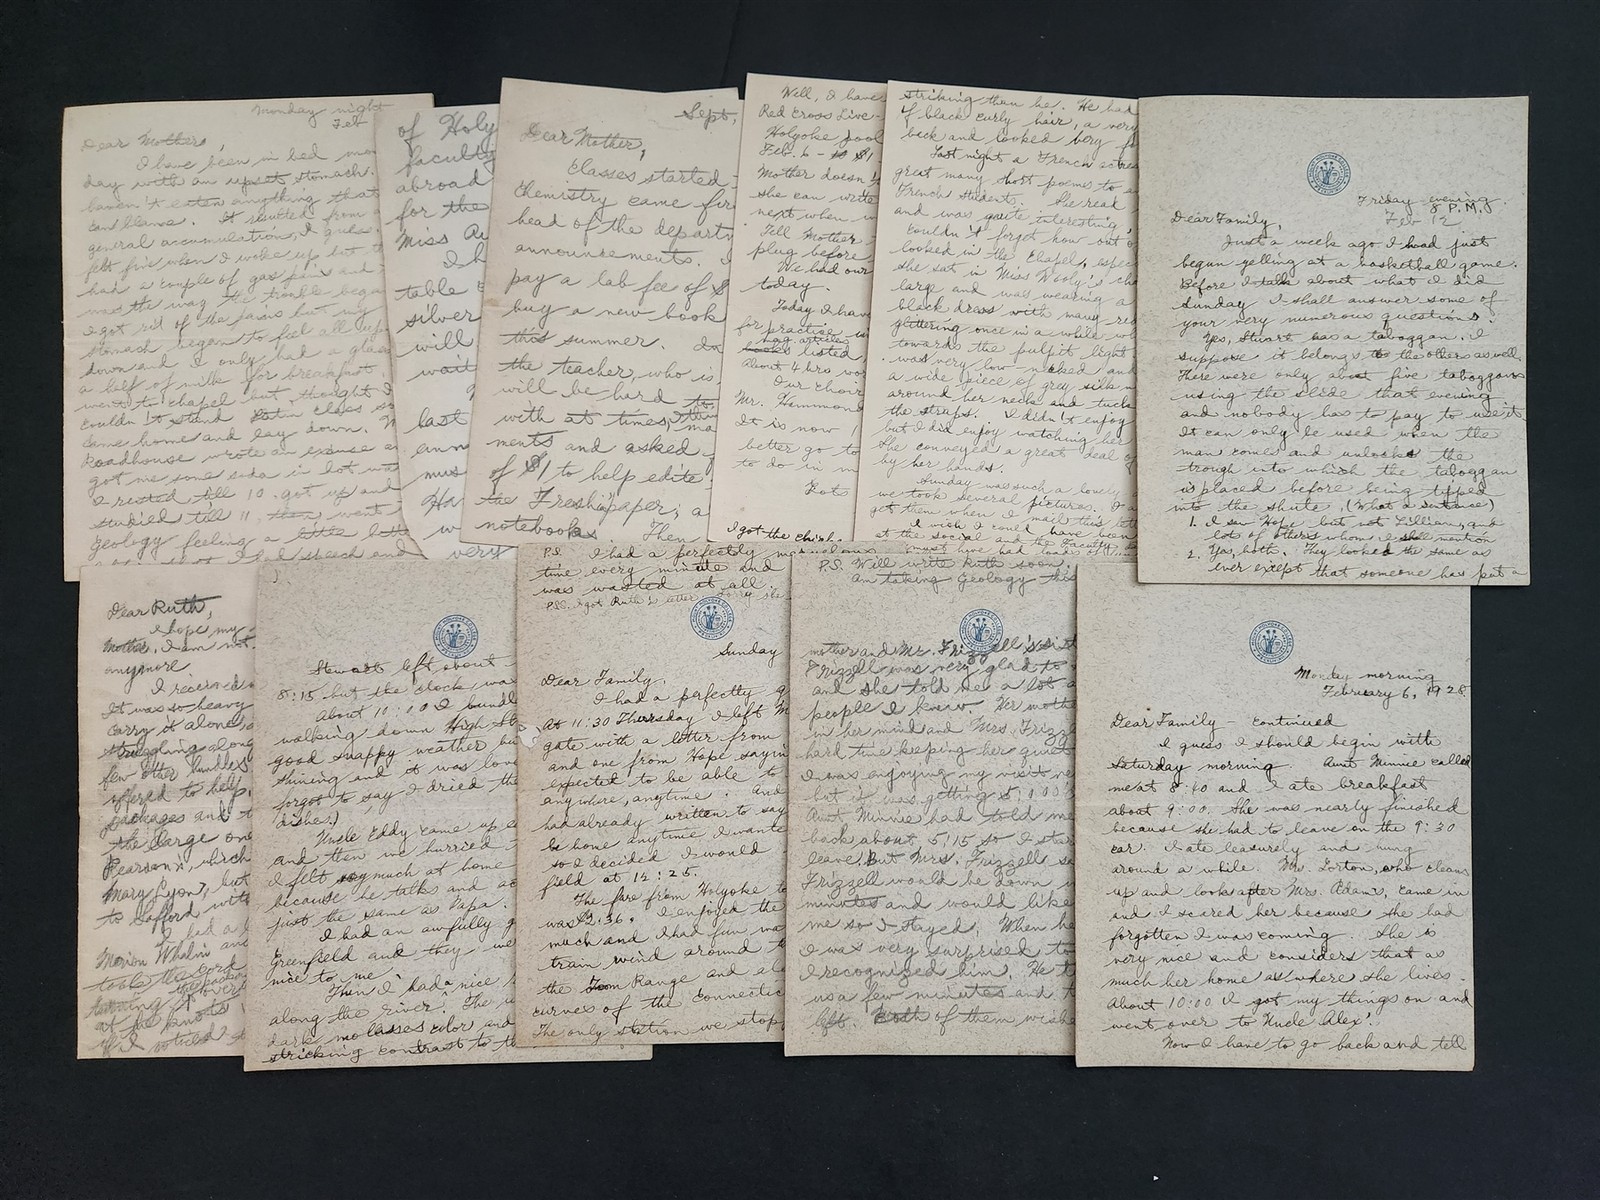 Monday night
Feb
Dear Mother,
I have been in bed
day with an upset stomach.
haven't eaten anything that
can blame. It resulted from
general accumulation, I guess.
felt fine when I woke up but
had a couple of gas pains and
was the way the trouble began
I got rid of the pains but my
stomach began to feel all up
down and I only had a glass
a half of milk for breakfast.
went to chapel but thought I
couldn't stand Latin class so
came home and lay down.
Roadhouse wrote an excuse
got me some soda in hot wat
I rested till 10 got up and
studied till 11, then went
geology feeling a little bett
I had speech and
of Holy
faculty
abroad
for the
Miss Au
I h
table
silver
will
wait
last
ann
mus
Ha
w
very
Sept,
Dear Mother,
Classes started
Chemistry came fir
head of the departm
announcements. I
pay a lab fee of $
buy a new book
this summer. In
the teacher, who is,
will be hard to
with at times,
ments and asked
of $1 to help edit
the Freshpaper, a
notebooks. Then
Well, I have
Red Cross Live-
Holyoke pool
Feb. 6 - $1
Mother doesn't
she can write
next when
Tell Mother
plug before
We had our
today.
Today I have
for practice
articles
books listed,
About 4 hrs wor
Our Choir
Mr. Hammond
It is now 1
better go to
to do in m
Lots
I got the
striking than he. He had
of black curly hair, a very
back and looked very f
Last night a French actress
great many short poems to
French students. She read
and was quite interesting,
couldn't forget how out o
looked in the Chapel, espec
she sat in Miss Wooly's cha
large and was wearing a
black dress with many re
glittering once in a while w
towards the pulpit light.
was very low-necked and
a wide piece of grey silk
around her neck and tuck
the straps. I didn't enjoy
but I did enjoy watching her
She conveyed a great deal of
by her hands.
Sunday was such a lovely
we took several pictures. I
get them when I mail this let
I wish I could have been
at the social and the Faculty
must have had load of
Friday evening.
8 P.M.
Feb 12
Dear Family,
Just a week ago I had just
begun yelling at a basketball game.
Before I talk about what I did
Sunday I shall answer some of
your very numerous questions.
Yes, Stuart has a taboggan. I
suppose it belongs to the others as well.
There were only about five taboggans
using the slide that evening
and nobody has to pay to use it
It can only be used when the
man comes and unlocks the
trough into which the taboggan
is placed before being tipped
into the shute. (What a sentence)
1. I saw Hope but not Lillian, and
lots of others whom I shall mention
2. Yes, both. They looked the same as
ever except that someone has put a
Dear Ruth,
I hope my
Mother, I am not
anymore
I received
It was so heavy
carry it alone,
struggling along
few other bundles
offered to help,
packages and t
the large one
Pearson's, which
Mary Lyon, but
to Safford with
I had a l
Marion Whalin and
table the cord
turning it over
at the knots
if I noticed
Stewart left about
8:15 but the clock wa
About 10:00 I bundl
walking down High St
good snappy weather bu
shining and it was love
forgot to say I dried th
dishes.)
Uncle Eddy came up
and then we hurried
I felt very much at home
because he talks and ac
just the same as Papa.
I had an awfully g
Greenfield and they we
nice to me.
Then I had a nice
along the river. The
dark molasses color and
striking contrast to th
P.S. I had a perfectly marvelous
time every minute and
was wasted at all.
P.S.S. I got Ruth's letter
Sunday
Dear Family.
I had a perfectly g
At 11:30 Thursday I left M
gate with a letter from
and one from Hope sayin
expected to be able to
anywhere, anytime. And
had already written to say
be home anytime I wante
so I decided I would
field at 12:25.
The fare from Holyoke to
was $1.36. I enjoyed the
much and I had fun wa
train wind around t
the Tom Range and al
curves of the Connectic
The only station we stop
P.S. Will write Ruth soon.
Am taking Geology this
mother and Mr. Frizzell's sist
Frizzell was very glad to
and she told me a lot a
people I knew. Her moth
in her mind and Mrs. Frizz
hard time keeping her quiet
I was enjoying my visit ve
but it was getting 5:00
Aunt Minnie had told me
back about 5:15 so I star
leave. But Mrs. Frizzell sa
Frizzell would be down
minutes and would like
me so I stayed. When he
I was very surprised to
I recognized him. He t
us a few minutes and t
left. Both of them wishe
Monday morning
February 6, 1928
Dear Family - continued
I guess I should begin with
Saturday morning. Aunt Minnie called
me at 8:40 and I ate breakfast
about 9:00. She was nearly finished
because she had to leave on the 9:30
car. I ate leasurely and hung
around a while. Mrs. Lorton, who cleans
up and looks after Mrs. Adams, came in
and I scared her because she had
forgotten I was coming. She is
very nice and considers that as
much her home as where she lives.
About 10:00 I got my things on and
went over to Uncle Alex'.
Now I have to go back and tell